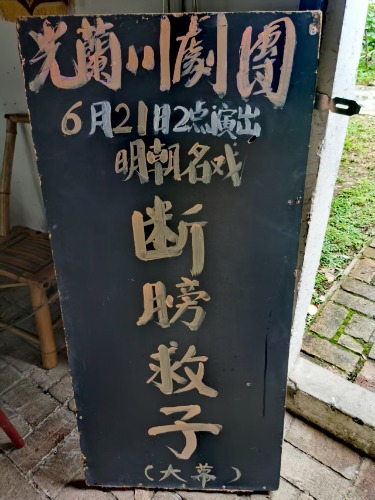 光蘭川劇團
6月21日2点演出
明朝名戏
断膀救子
（大幕）